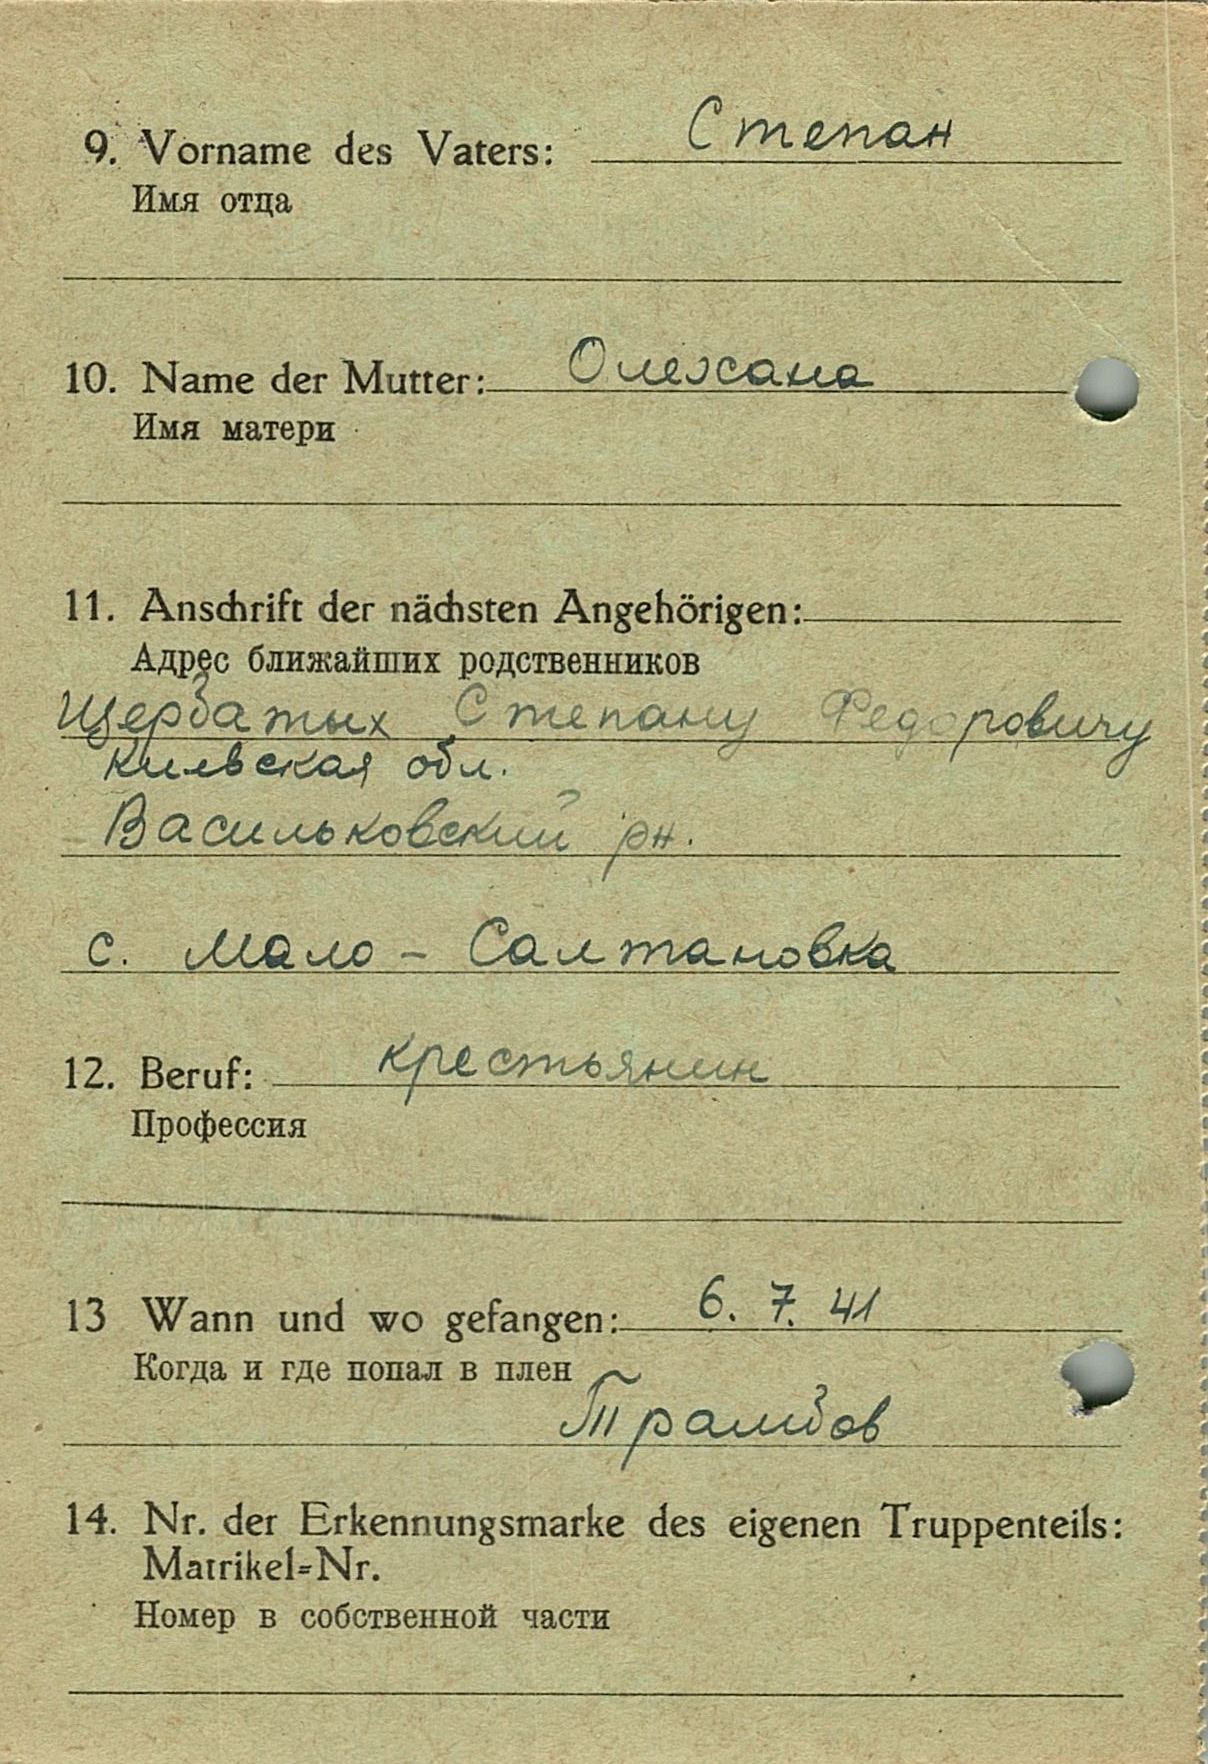 9. Vorname des Vaters: Степан
Имя отца
10. Name der Mutter: Олексана
Имя матери
11. Anschrift der nächsten Angehörigen:
Адрес ближайших родственников
Щербатых Степану Федоровичу
Киевская обл.
Васильковский рн.
с. Мало - Салтановка
12. Beruf: крестьянин
Профессия
13 Wann und wo gefangen: 6. 7. 41
Когда и где попал в плен
14. Nr. der Erkennungsmarke des eigenen Truppenteils:
Matrikel=Nr.
Номер в собственной части